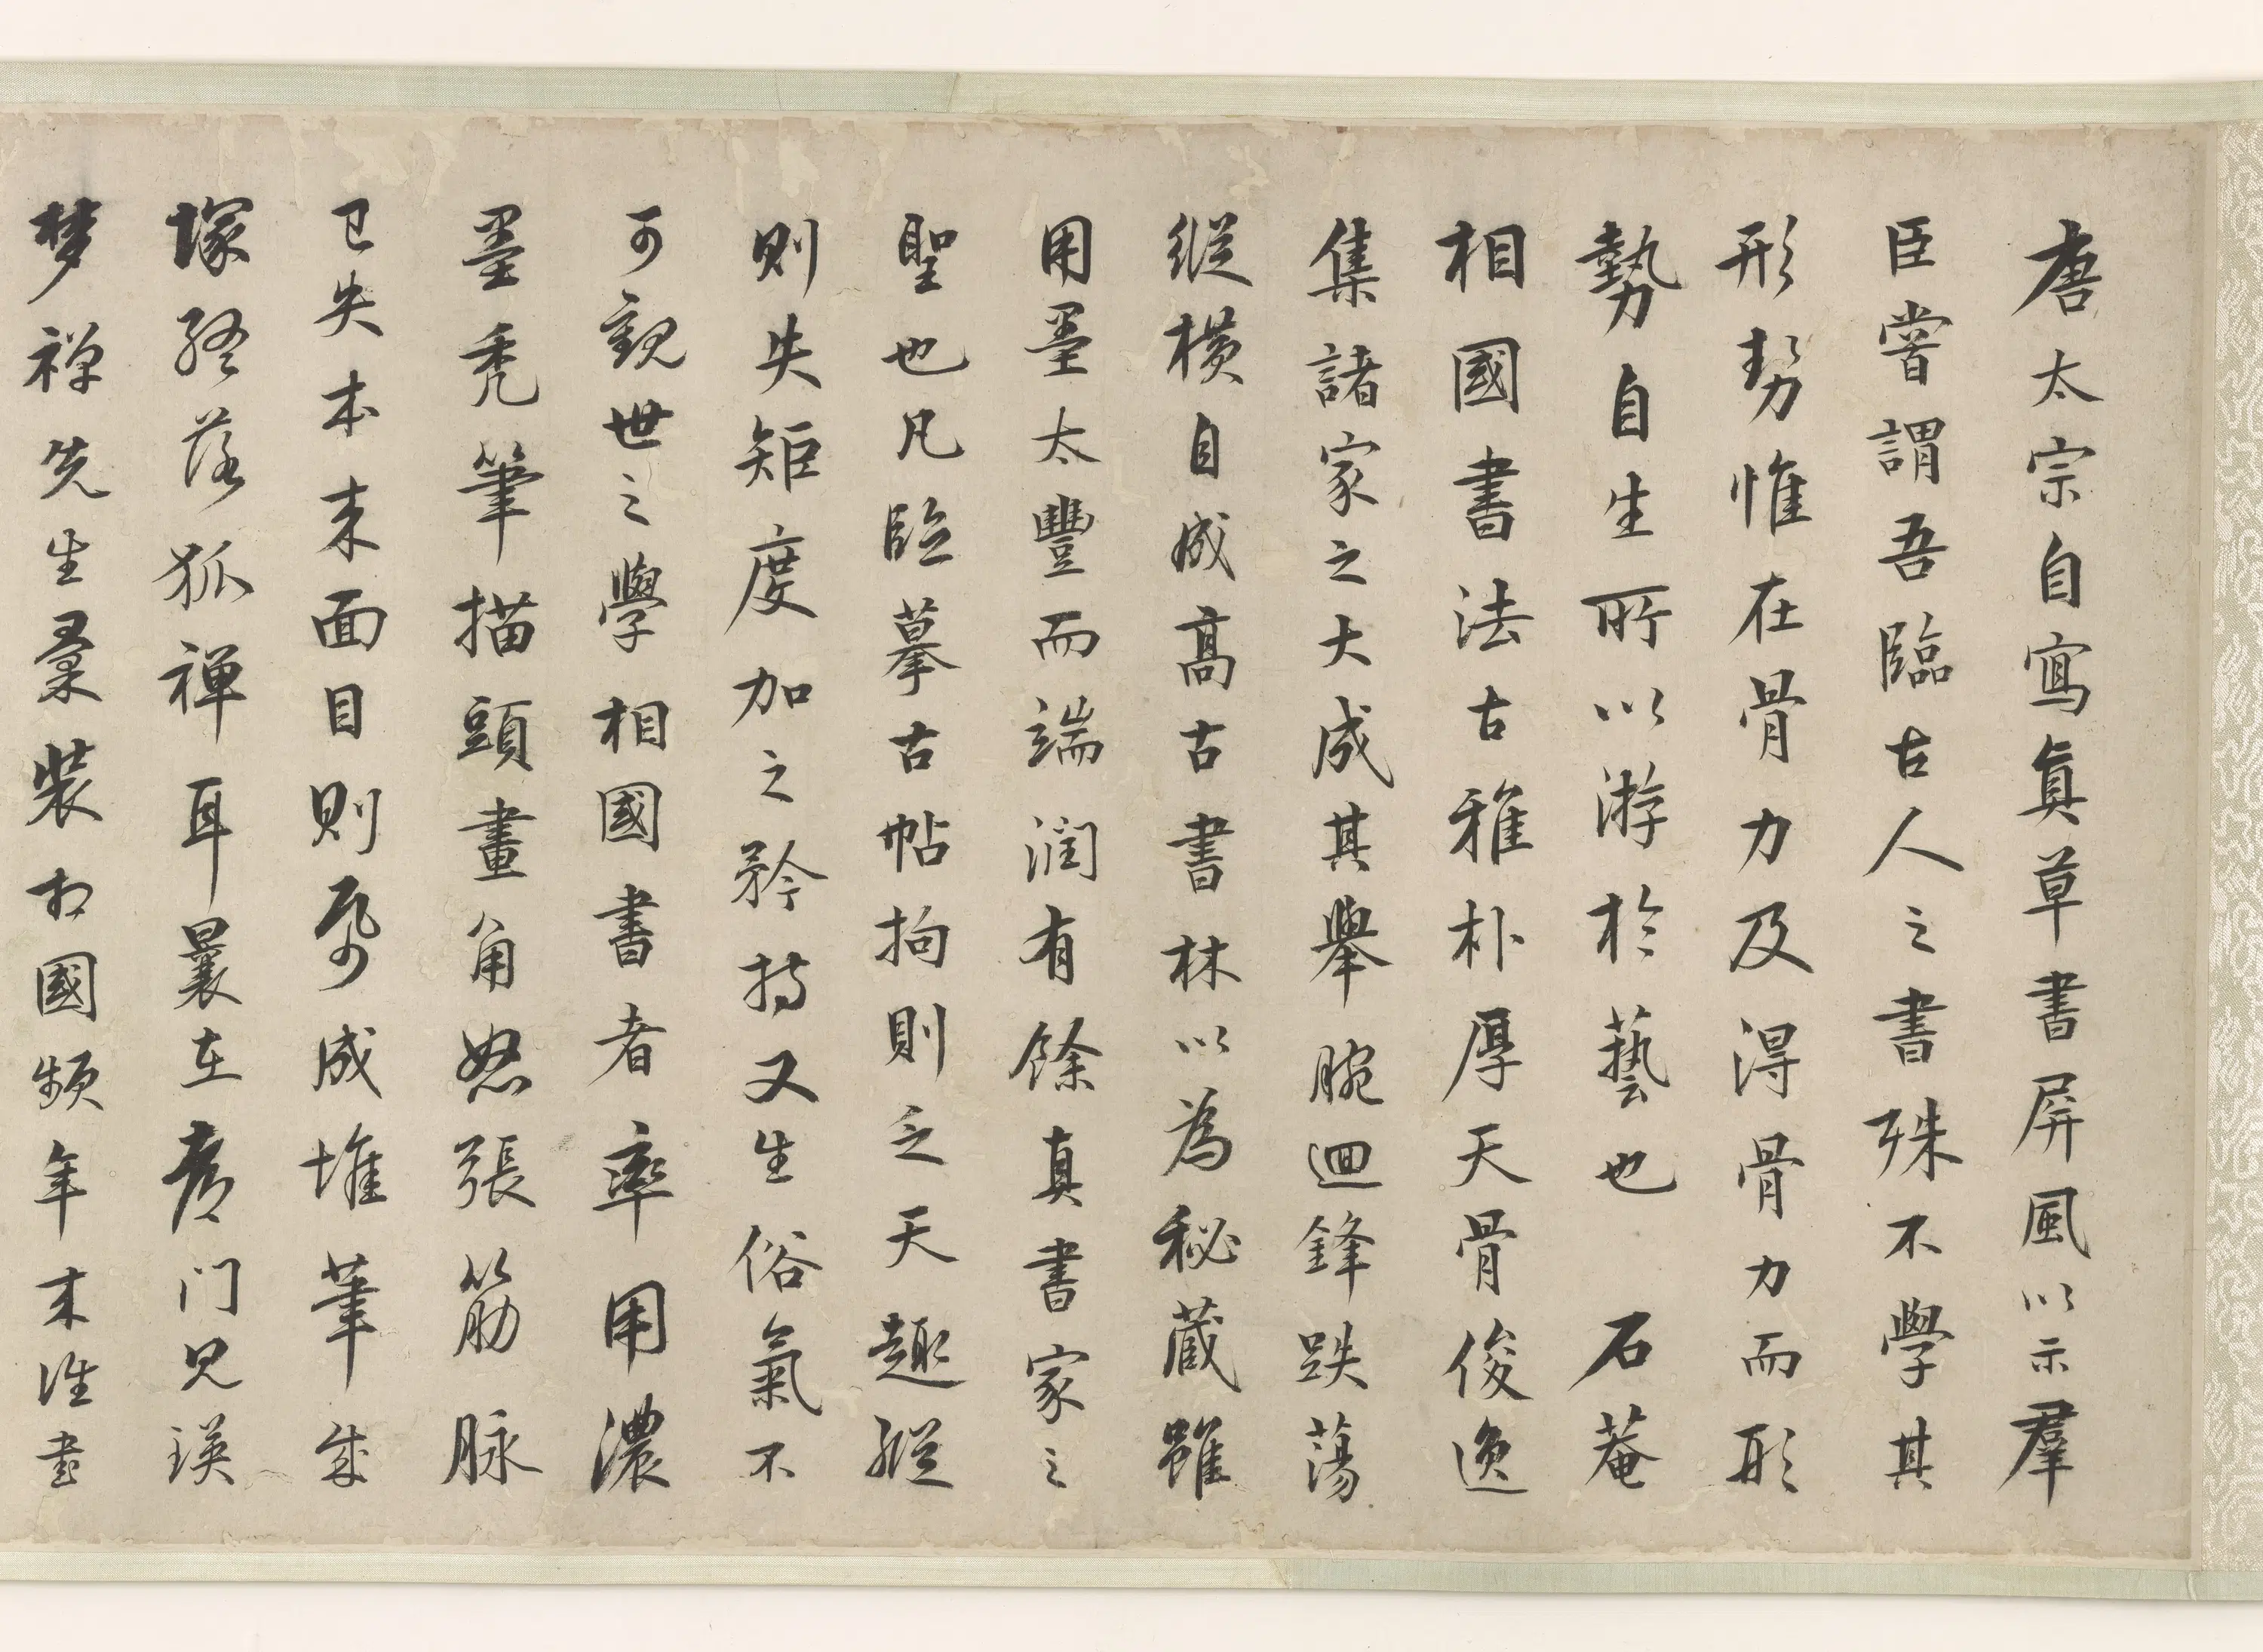 唐太宗自寫真草書屏風以示羣
臣嘗謂吾臨古人之書殊不學其
形勢惟在骨力及得骨力而形
勢自生所以游於藝也石菴
相國書法古雅朴厚天骨俊逸
集諸家之大成其舉腕迴鋒跌蕩
縱橫自成高古書林以為秘藏雖
用墨太豐而端潤有餘真書家之
聖也凡臨摹古帖拘則乏天趣縱
則失矩度加之矜持又生俗氣不
可觀世之學相國書者率用濃
墨禿筆描頭畫角怒張筋脉
已失本來面目則雖成堆筆成
塚終落狐禪耳曩在彥門兄瑛
梦禅先生彙裝相國頻年來往書